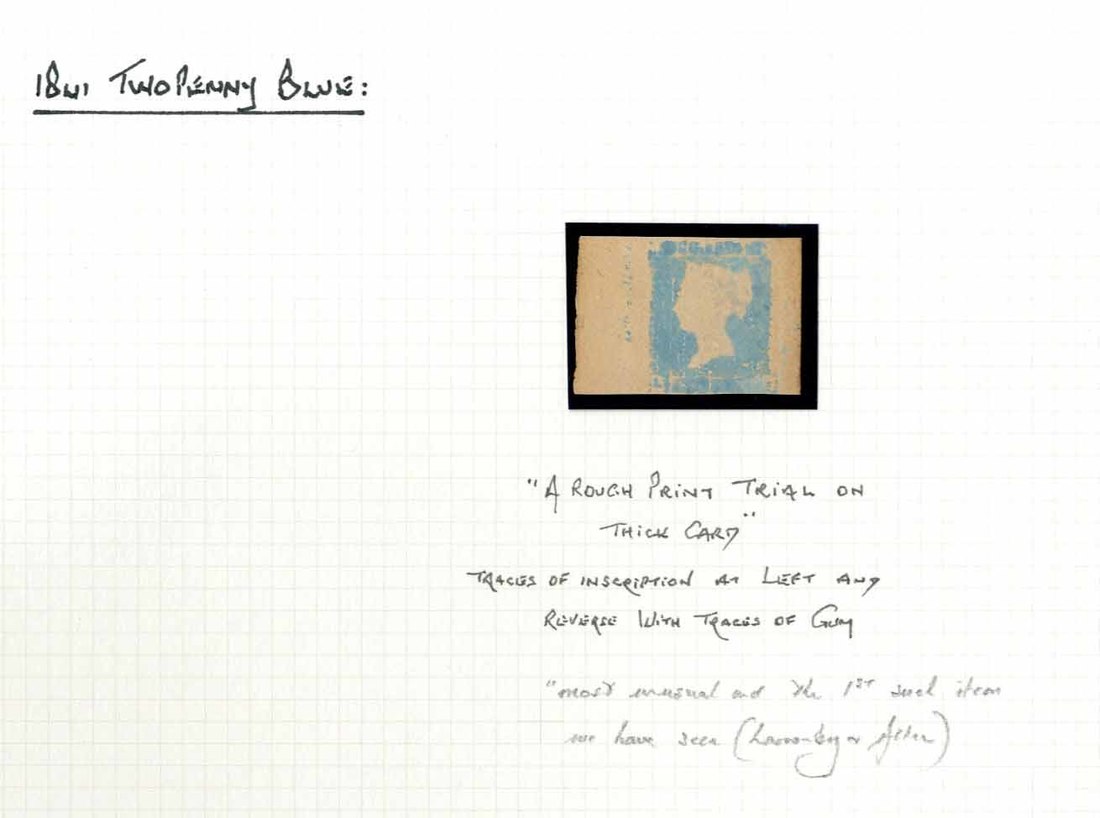 1841 TwoPenny Blue:
"A Rough Print Trial on
Thick Card"
Traces of inscription at Left and
Reverse With Traces of Gum
"most unusual and the 1st such item
we have seen (